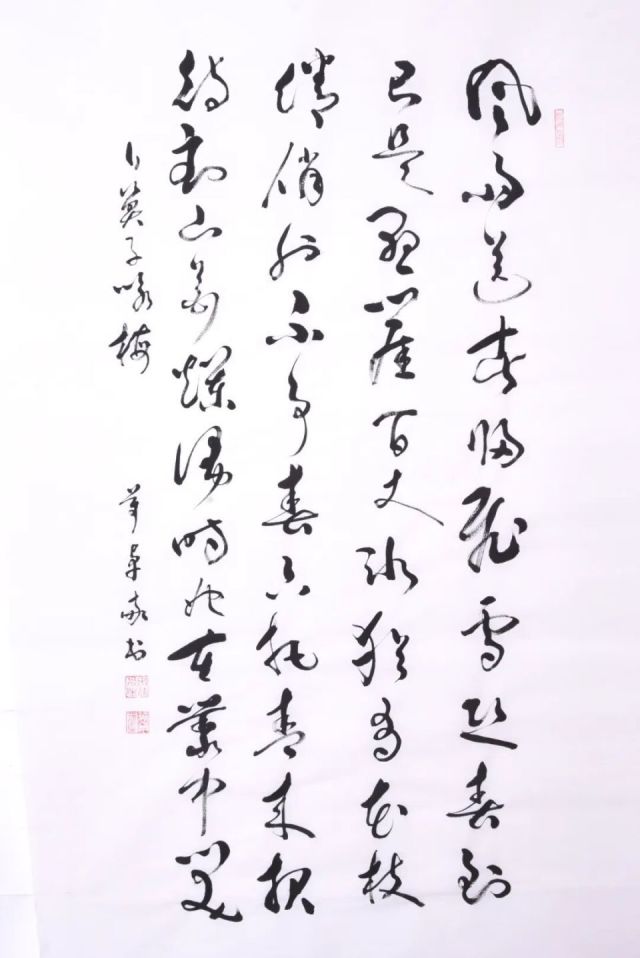 風雨送春归飛雪迎春到
已是懸崖百丈冰猶有花枝
俏俏也不争春只把春来报
待到山花爛漫时她在叢中笑
卜算子咏梅
书